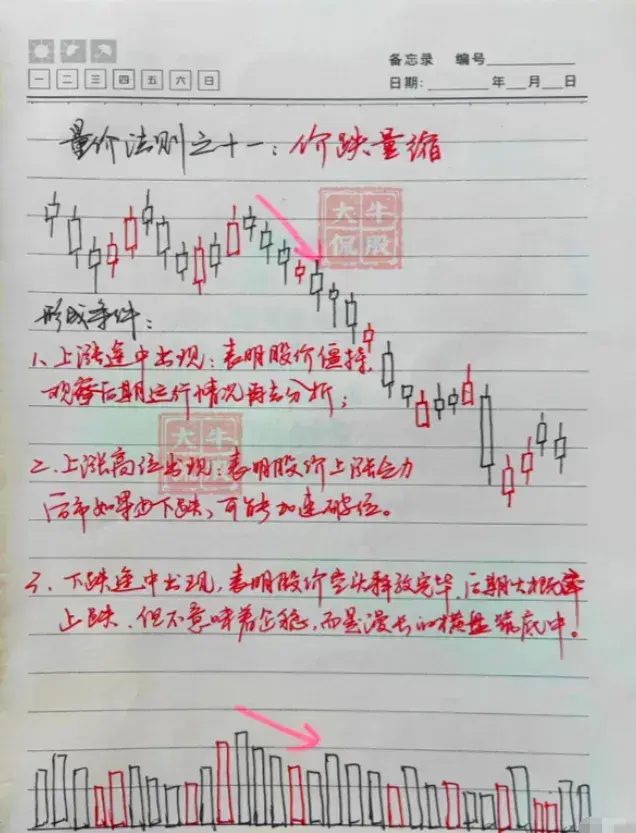 备忘录 编号
一 二 三 四 五 六 日
日期: 年 月 日
量价法则之十一：价跌量缩
大牛
侃股
形成条件：
1、上涨途中出现：表明股价僵持，
观察后期运行情况再去分析；
大牛
侃股
2、上涨高位出现：表明股价上涨乏力
后市如果由下跌，可能加速破位。
3、下跌途中出现，表明股价空头释放完毕，后期大概率
止跌，但不意味着企稳，而是漫长的横盘筑底中！